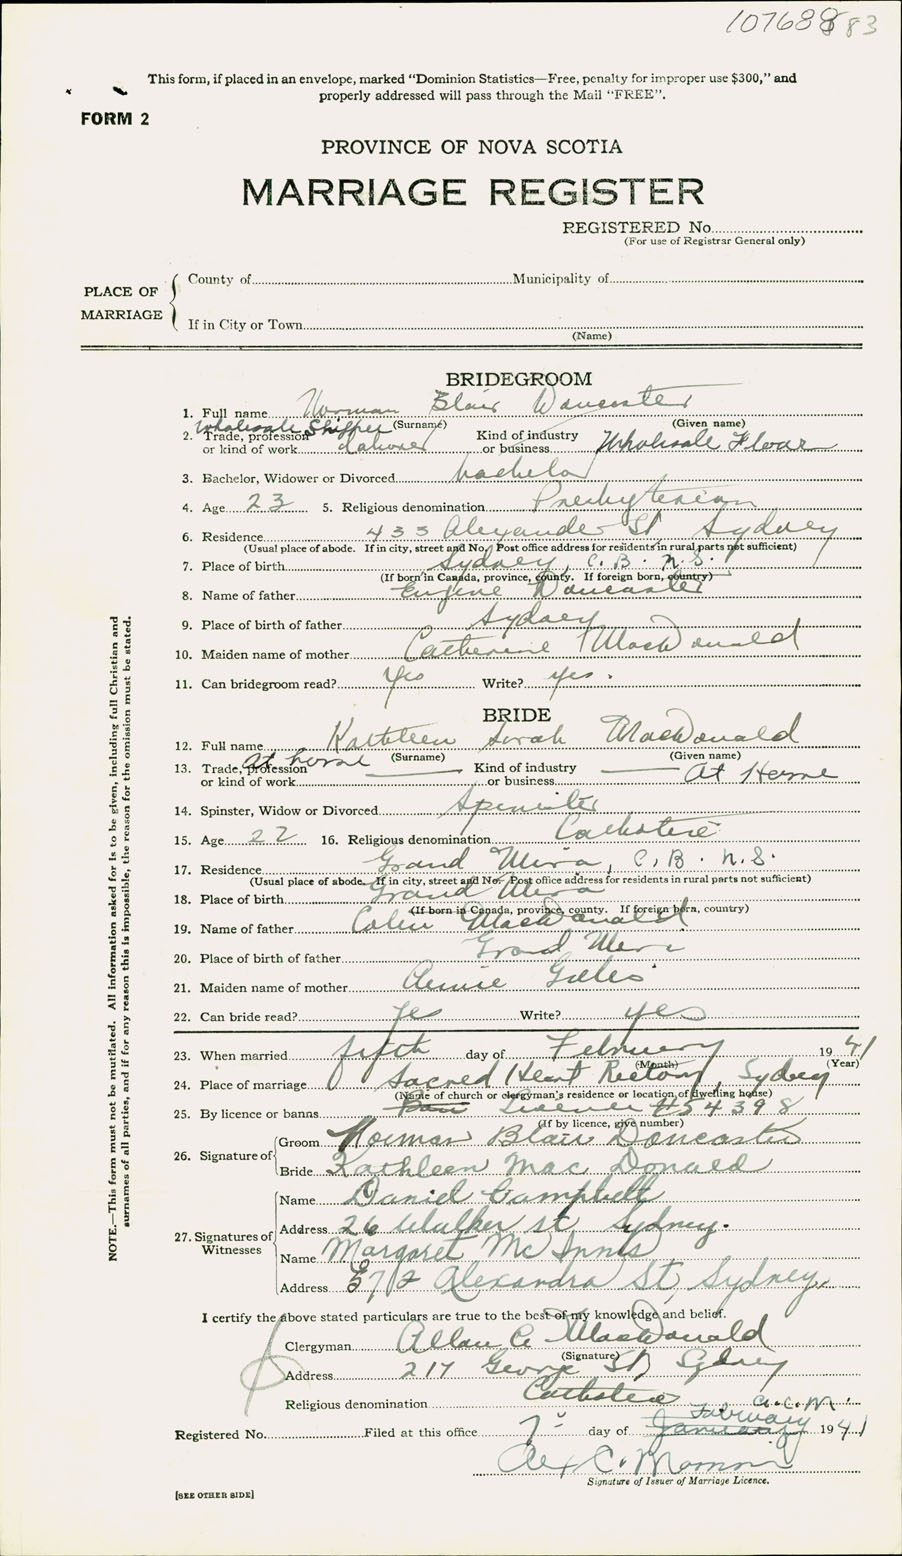 107688 83
This form, if placed in an envelope, marked “Dominion Statistics—Free, penalty for improper use $300,” and
properly addressed will pass through the Mail “FREE”.
FORM 2
PROVINCE OF NOVA SCOTIA
MARRIAGE REGISTER
REGISTERED No.
(For use of Registrar General only)
PLACE OF MARRIAGE
County of Municipality of
If in City or Town
(Name)
BRIDEGROOM
1. Full name Norman Blair Doncaster
(Surname) (Given name)
Wholesale Shipper
2. Trade, profession Kind of industry
or kind of work labourer or business Wholesale Flour
3. Bachelor, Widower or Divorced bachelor
4. Age 23 5. Religious denomination Presbyterian
6. Residence 433 Alexander St Sydney
(Usual place of abode. If in city, street and No. Post office address for residents in rural parts not sufficient)
7. Place of birth Sydney, C.B. N.S.
(If born in Canada, province, county. If foreign born, country)
8. Name of father Eugene Doncaster
9. Place of birth of father Sydney
10. Maiden name of mother Catherine MacDonald
11. Can bridegroom read? Yes Write? yes.
BRIDE
12. Full name Kathleen Sarah MacDonald
(Surname) (Given name)
at home
13. Trade, profession Kind of industry
or kind of work or business At Home
14. Spinster, Widow or Divorced Spinster
15. Age 22 16. Religious denomination Catholic
17. Residence Grand Mira, C.B. N.S.
(Usual place of abode. If in city, street and No. Post office address for residents in rural parts not sufficient)
18. Place of birth Grand Mira
(If born in Canada, province, county. If foreign born, country)
19. Name of father Colin MacDonald
20. Place of birth of father Grand Mira
21. Maiden name of mother Annie Gillis
22. Can bride read? yes Write? yes
23. When married fifth day of February 1941
(Month) (Year)
24. Place of marriage Sacred Heart Rectory, Sydney
(Name of church or clergyman’s residence or location of dwelling house)
25. By licence or banns License #54398
(If by licence, give number)
26. Signature of
Groom Norman Blair Doncaster
Bride Kathleen Mac Donald
27. Signatures of Witnesses
Name Daniel Campbell
Address 26 Walker st Sydney.
Name Margaret Mc Innis
Address 572 Alexandra St, Sydney,
I certify the above stated particulars are true to the best of my knowledge and belief.
Clergyman Allan A. MacDonald
(Signature)
Address 217 George St, Sydney
Religious denomination Catholic
a.c.m.
February
Registered No. Filed at this office 7 day of January 1941
Alex C.
Signature of Issuer of Marriage Licence.
[SEE OTHER SIDE]
NOTE.—This form must not be mutilated. All information asked for is to be given, including full Christian and
surnames of all parties, and if for any reason this is impossible, the reason for the omission must be stated.